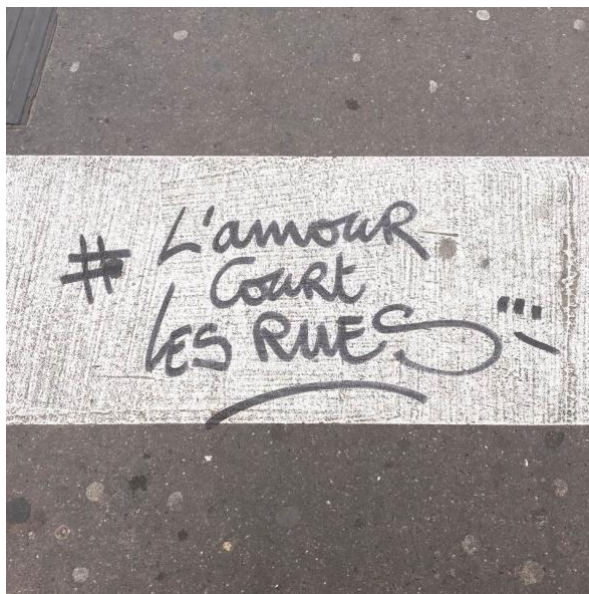 # L'amour
Court
Les Rues...